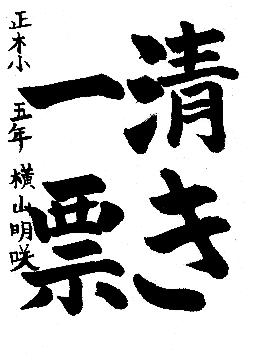 清き
一票
正木小 五年 横山明咲